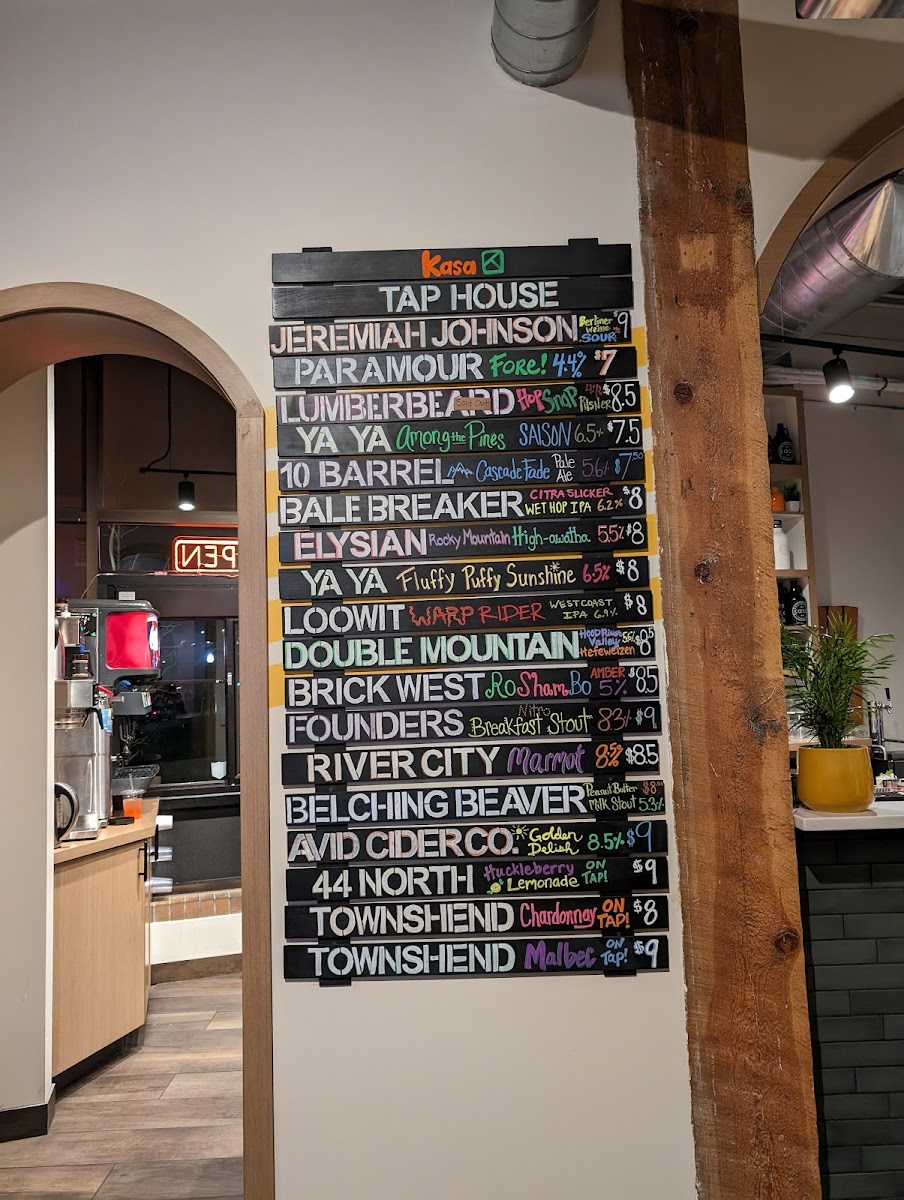 Kasa
TAP HOUSE
JEREMIAH JOHNSON Berliner Weisse SOUR $9
PARAMOUR Fore! 4.4% $7
LUMBERBEARD Sold Out Hop Snap Pilsner $8.5
YA YA Among the Pines SAISON 6.5% $7.5
10 BARREL Cascade Fade Pale Ale 5.6% $7.50
BALE BREAKER CITRA SLICKER WET HOP IPA 6.2% $8
ELYSIAN Rocky Mountain High-awatha 5.5% $8
YA YA Fluffy Puffy Sunshine 6.5% $8
LOOWIT WARP RIDER WEST COAST IPA 6.9% $8
DOUBLE MOUNTAIN Hood River Valley Hefeweizen 5.6% $8.5
BRICK WEST RoShamBo AMBER 5% $8.5
FOUNDERS Nitro Breakfast Stout 8.3% $9
RIVER CITY Marmot 8.5% $8.5
BELCHING BEAVER Peanut Butter Milk Stout $8 5.3%
AVID CIDER CO. Golden Delish 8.5% $9
44 NORTH Huckleberry Lemonade ON TAP! $9
TOWNSHEND Chardonnay ON TAP! $8
TOWNSHEND Malbec ON TAP! $9
OPEN